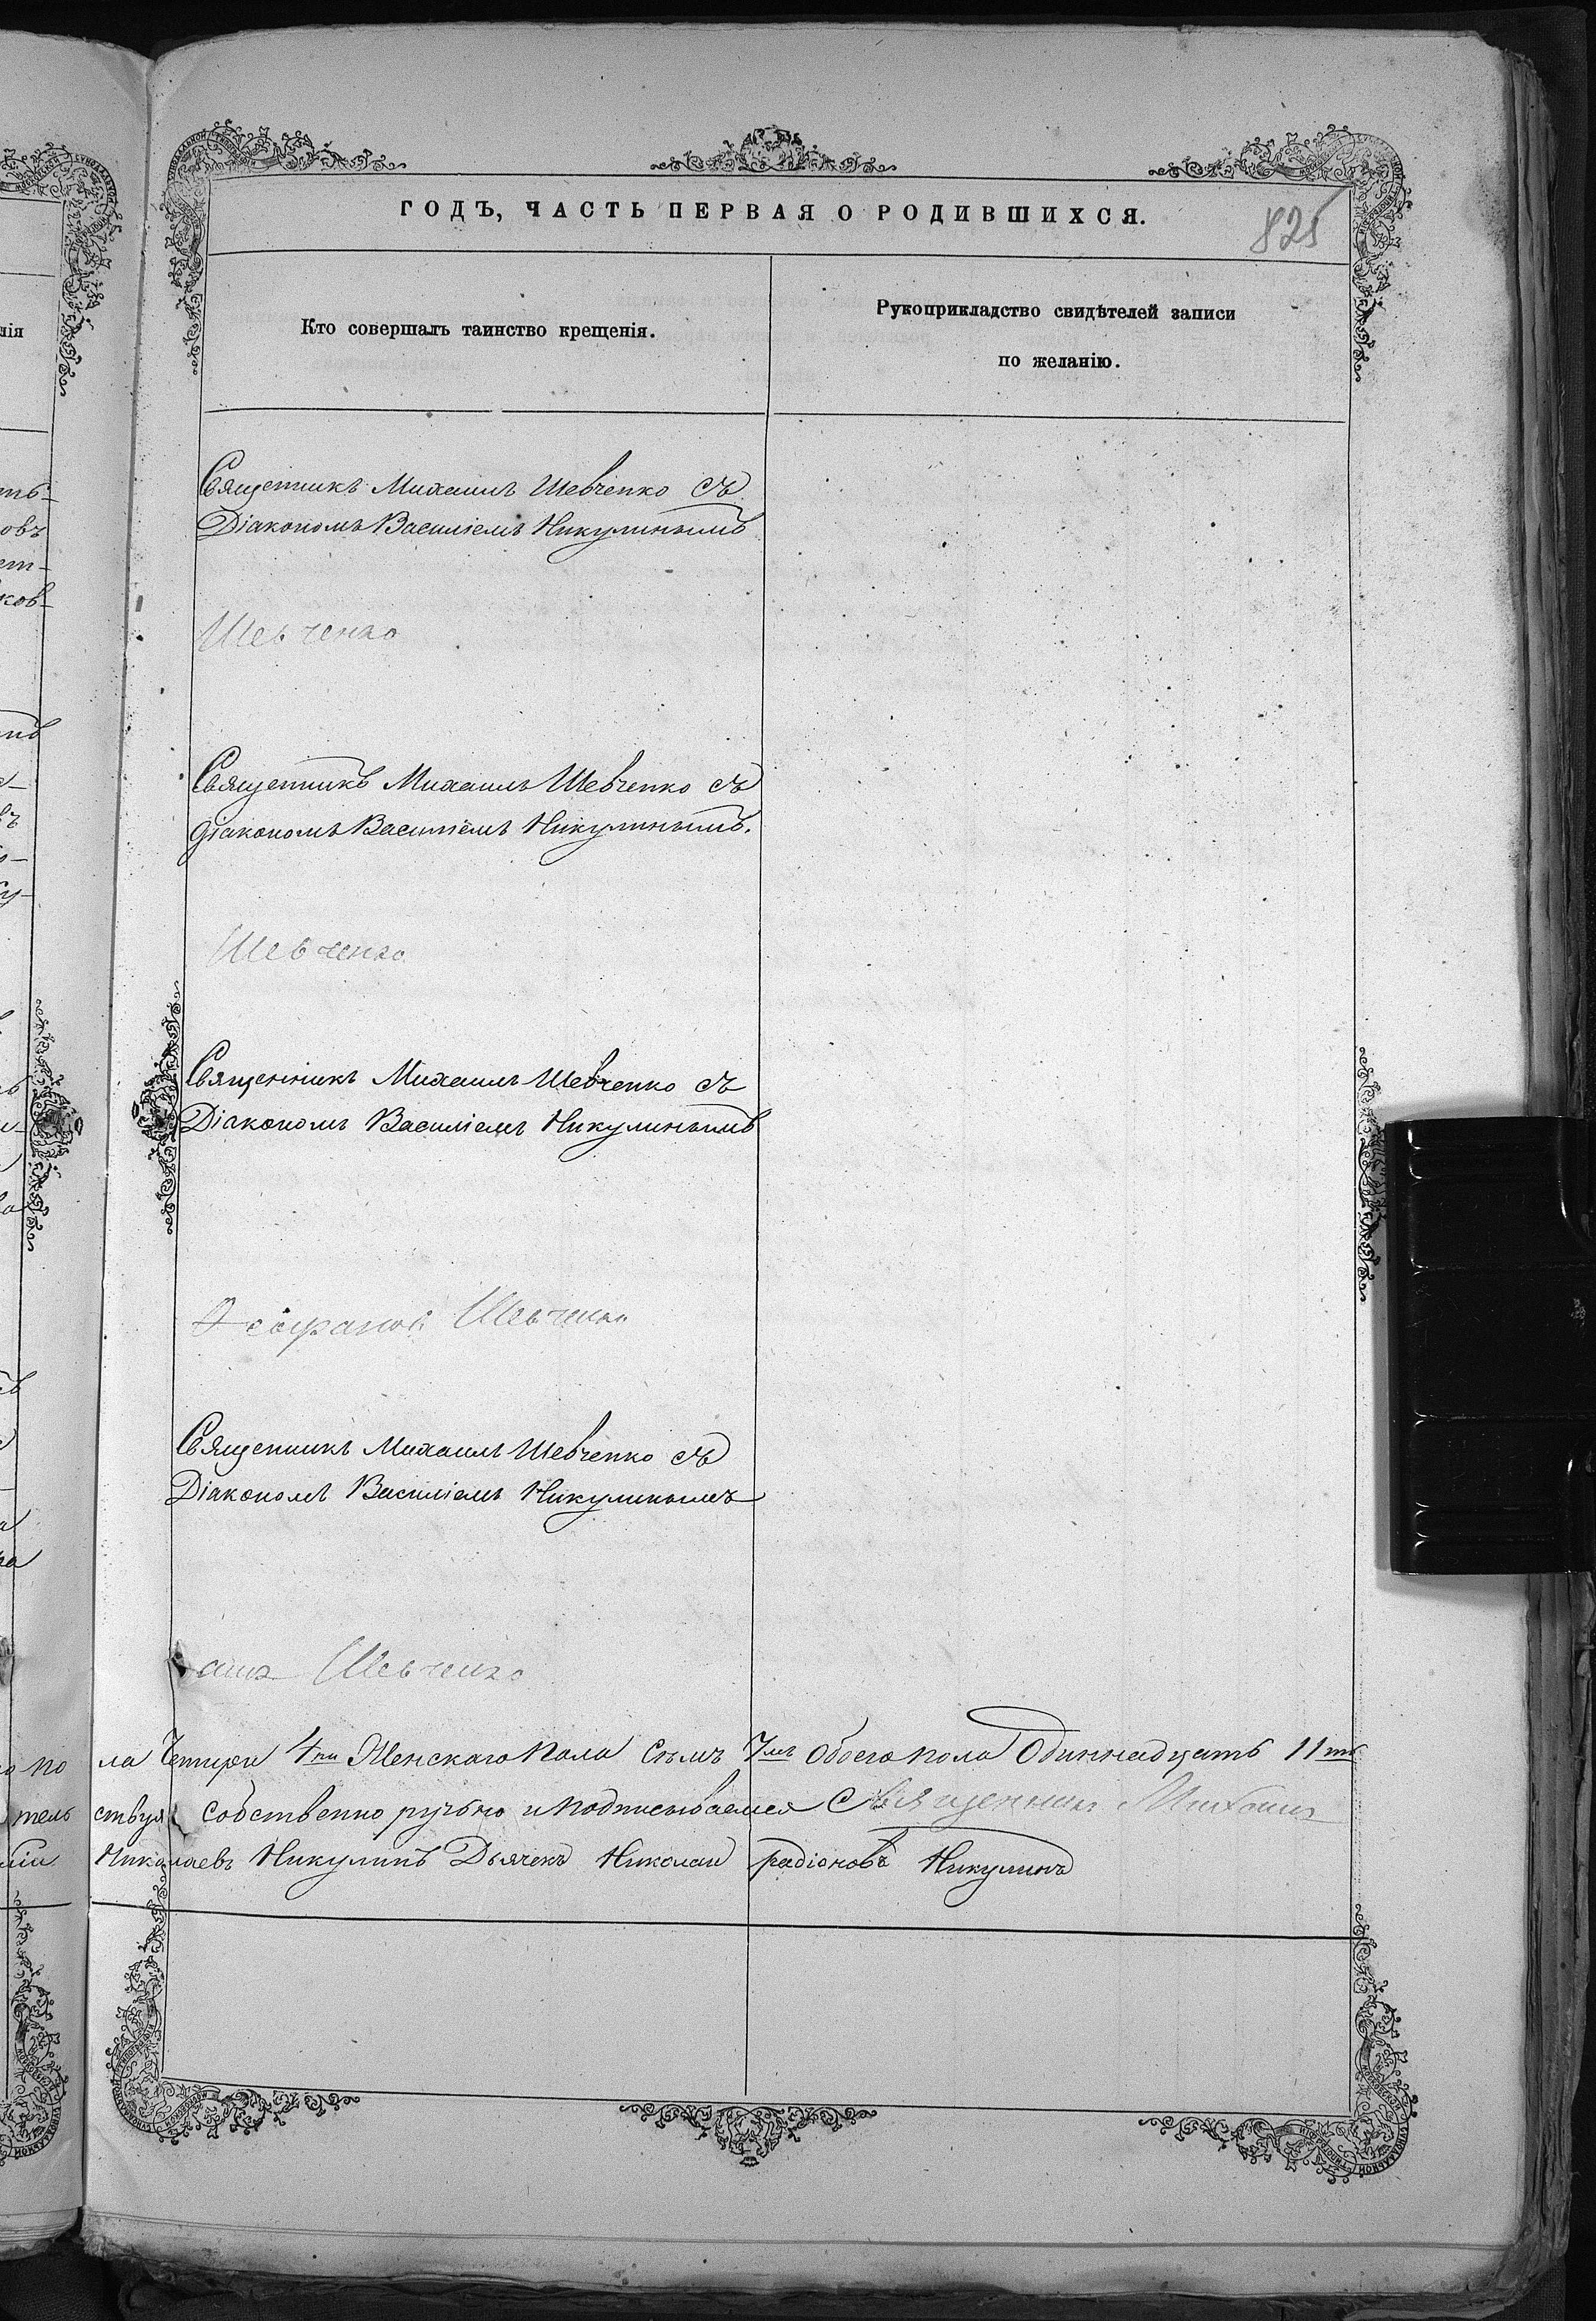 ГОДЪ, ЧАСТЬ ПЕРВАЯ О РОДИВШИХСЯ.
825
Кто совершалъ таинство крещенія.
Рукоприкладство свидѣтелей записи
по желанію.
Священникъ Михаилъ Шевченко съ
Діакономъ Василіемъ Никулинымъ
Шевченко
Священникъ Михаилъ Шевченко съ
діакономъ Василіемъ Никулинымъ.
Шевченко
Священникъ Михаилъ Шевченко съ
Діакономъ Василіемъ Никулинымъ
Шевченко
Священникъ Михаилъ Шевченко съ
Діакономъ Василіемъ Никулинымъ
Шевченко
по ла Четыри 4ри Женскаго пола Семъ 7мъ Обоего пола Одиннадцать 11ть
тель ствуя собственно ручно и подписываемся Священникъ Михаилъ
Николаевъ Никулинъ Дьячекъ Николаи радіоновъ Никулинъ